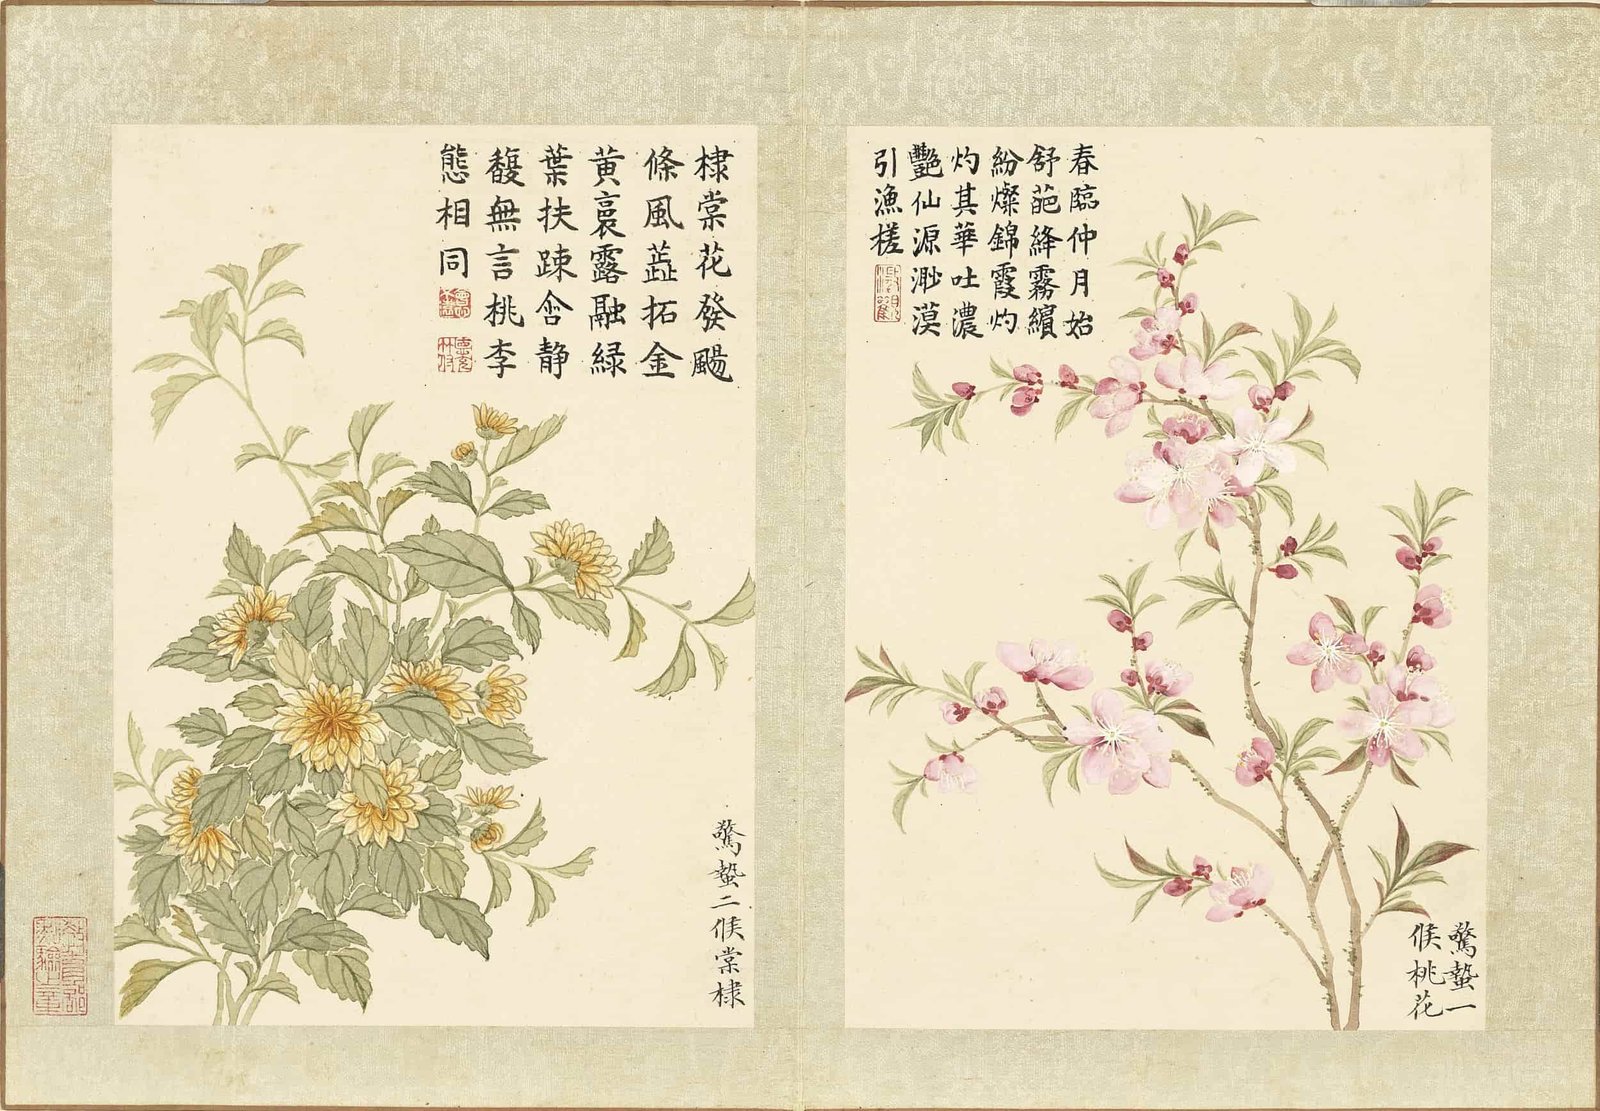 春臨仲月始
舒葩絳霧繽
紛燦錦霞灼
灼其華吐濃
艷仙源渺漠
引漁槎
驚蟄一
候桃花
棣棠花發颺
條風蕋拓金
黃裛露融綠
葉扶踈含静
馥無言桃李
態相同
驚蟄二候棠棣